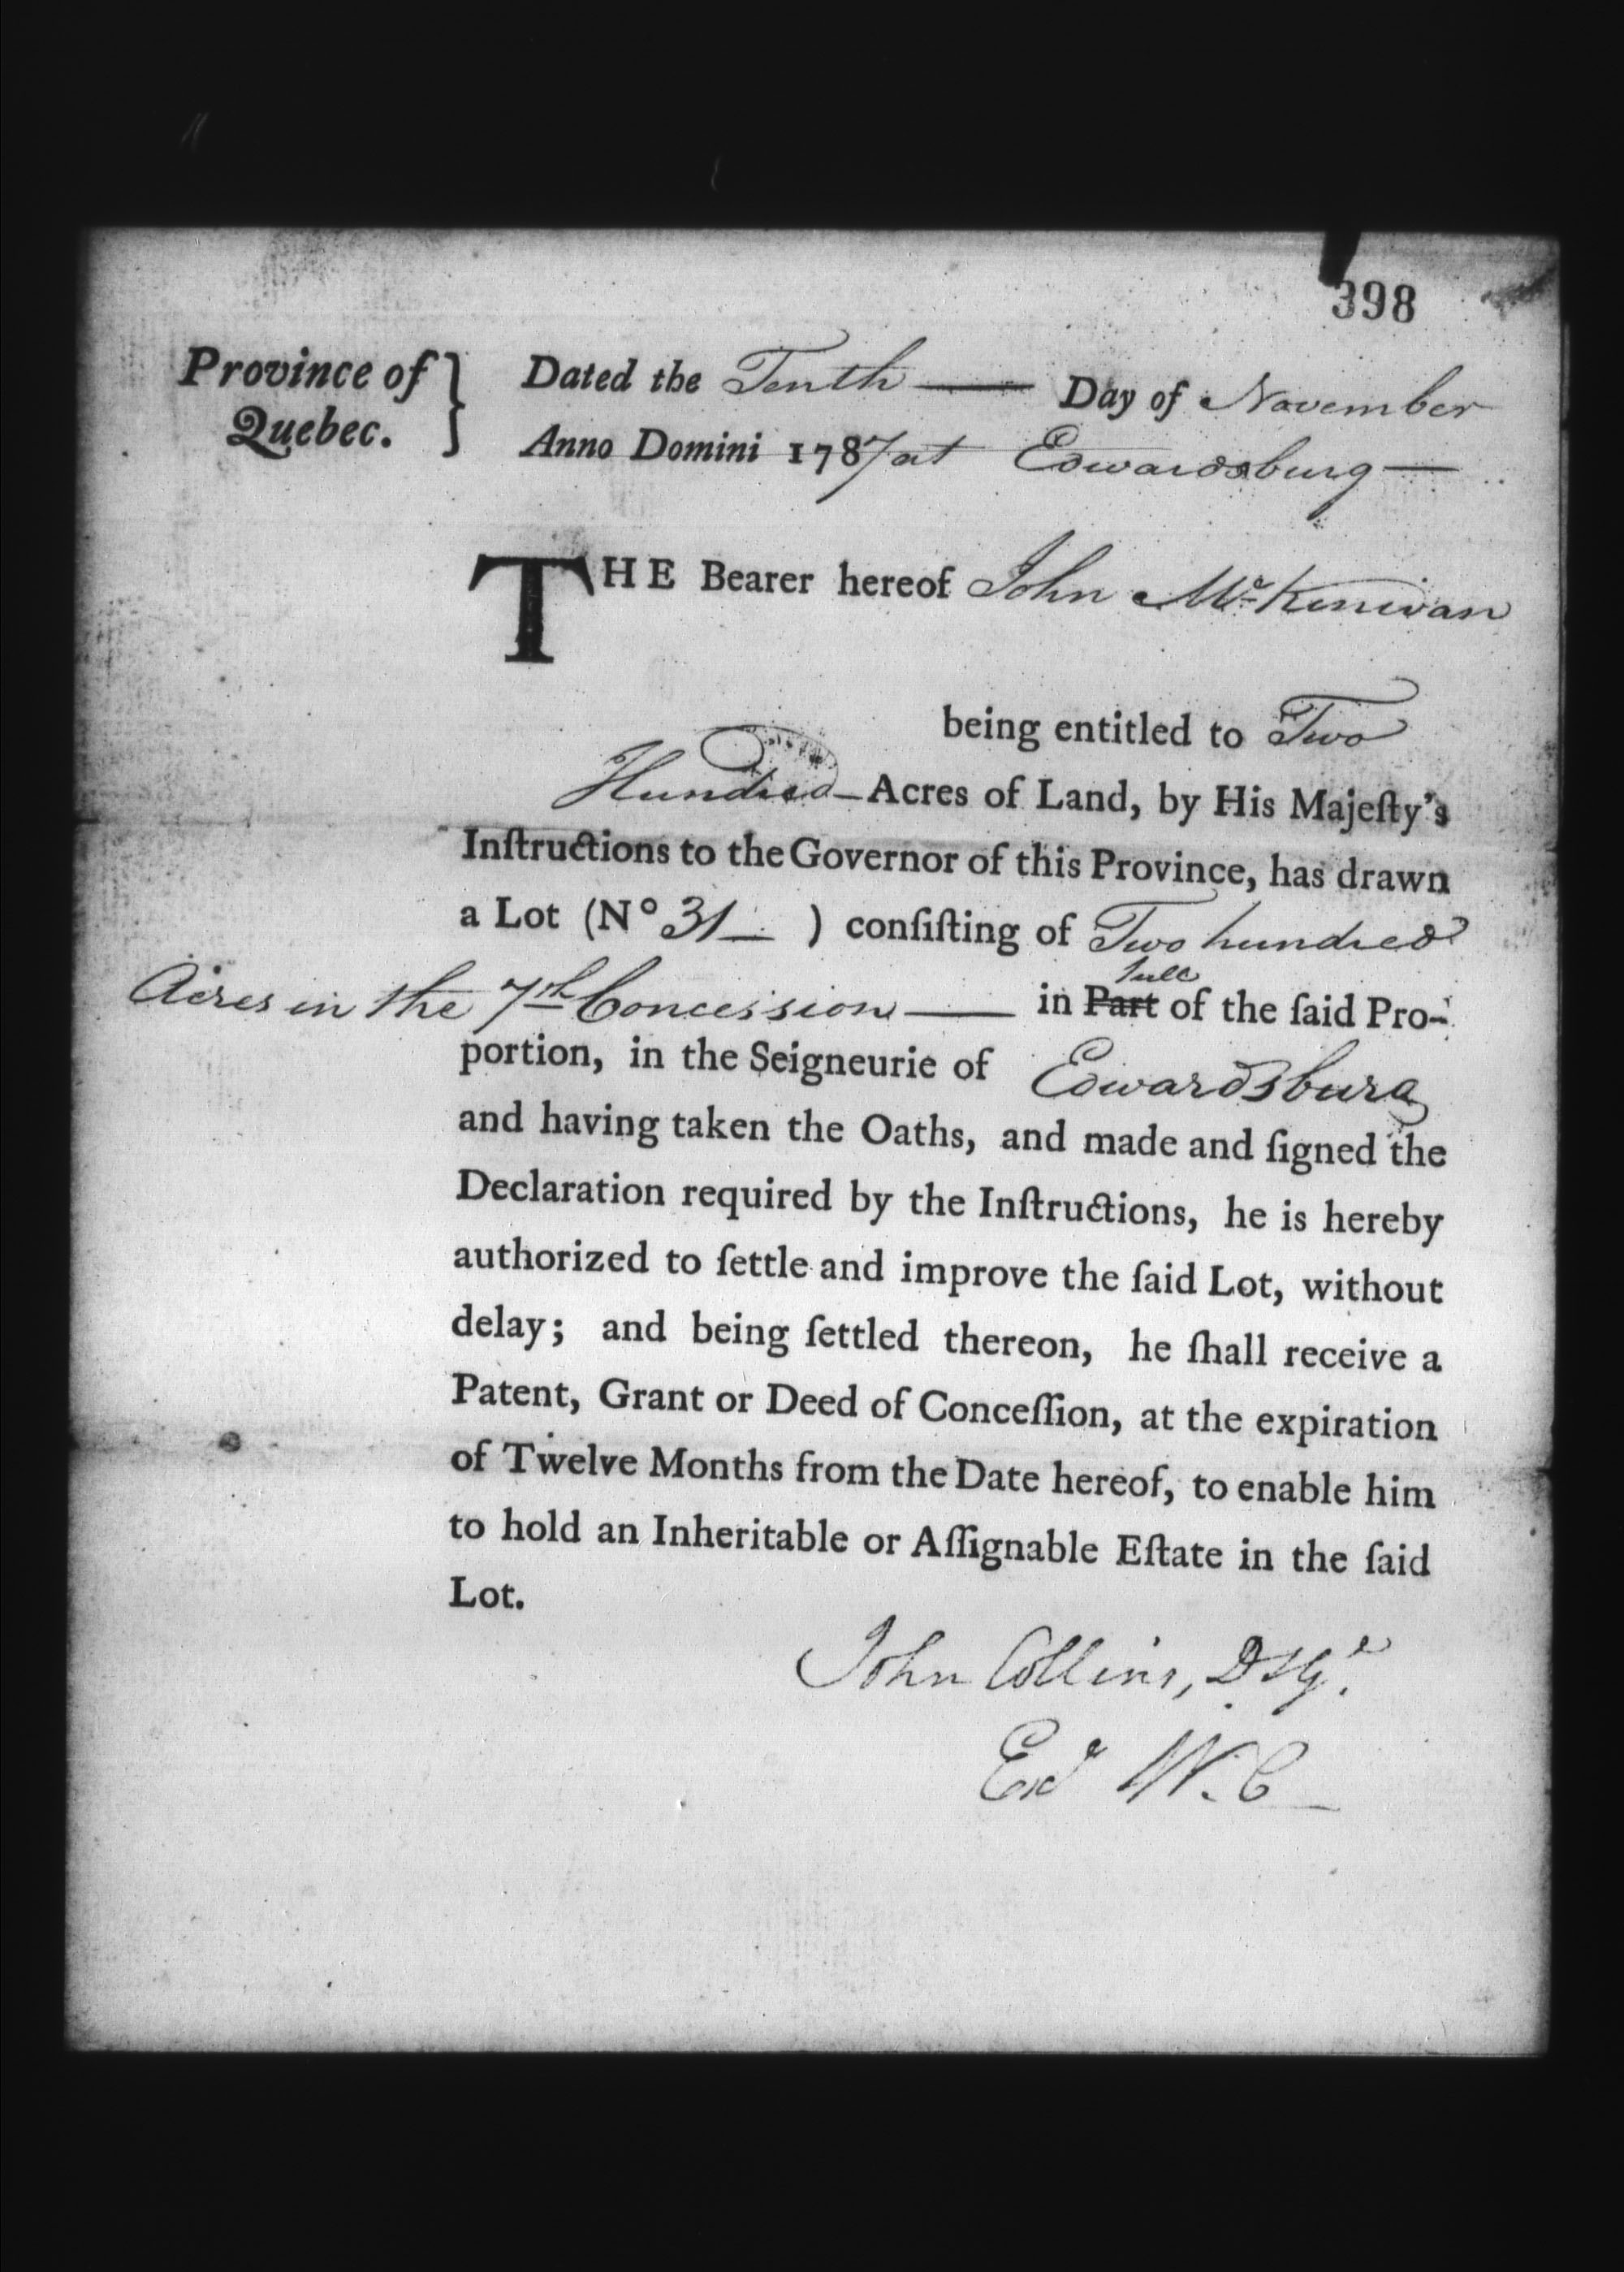 398
Province of Quebec. } Dated the Tenth — Day of November
Anno Domini 1787 at Edwardsburg —
THE Bearer hereof John McKinivan
being entitled to Two
Hundred — Acres of Land, by His Majeſty's
Inſtructions to the Governor of this Province, has drawn
a Lot (No 31 — ) conſiſting of Two hundred
Acres in the 7th Concession — in Part full of the ſaid Pro-
portion, in the Seigneurie of Edwardsburg
and having taken the Oaths, and made and ſigned the
Declaration required by the Inſtructions, he is hereby
authorized to ſettle and improve the ſaid Lot, without
delay; and being ſettled thereon, he ſhall receive a
Patent, Grant or Deed of Conceſſion, at the expiration
of Twelve Months from the Date hereof, to enable him
to hold an Inheritable or Aſſignable Eſtate in the ſaid
Lot.
John Collins, D.S.Gl.
Exd W. C